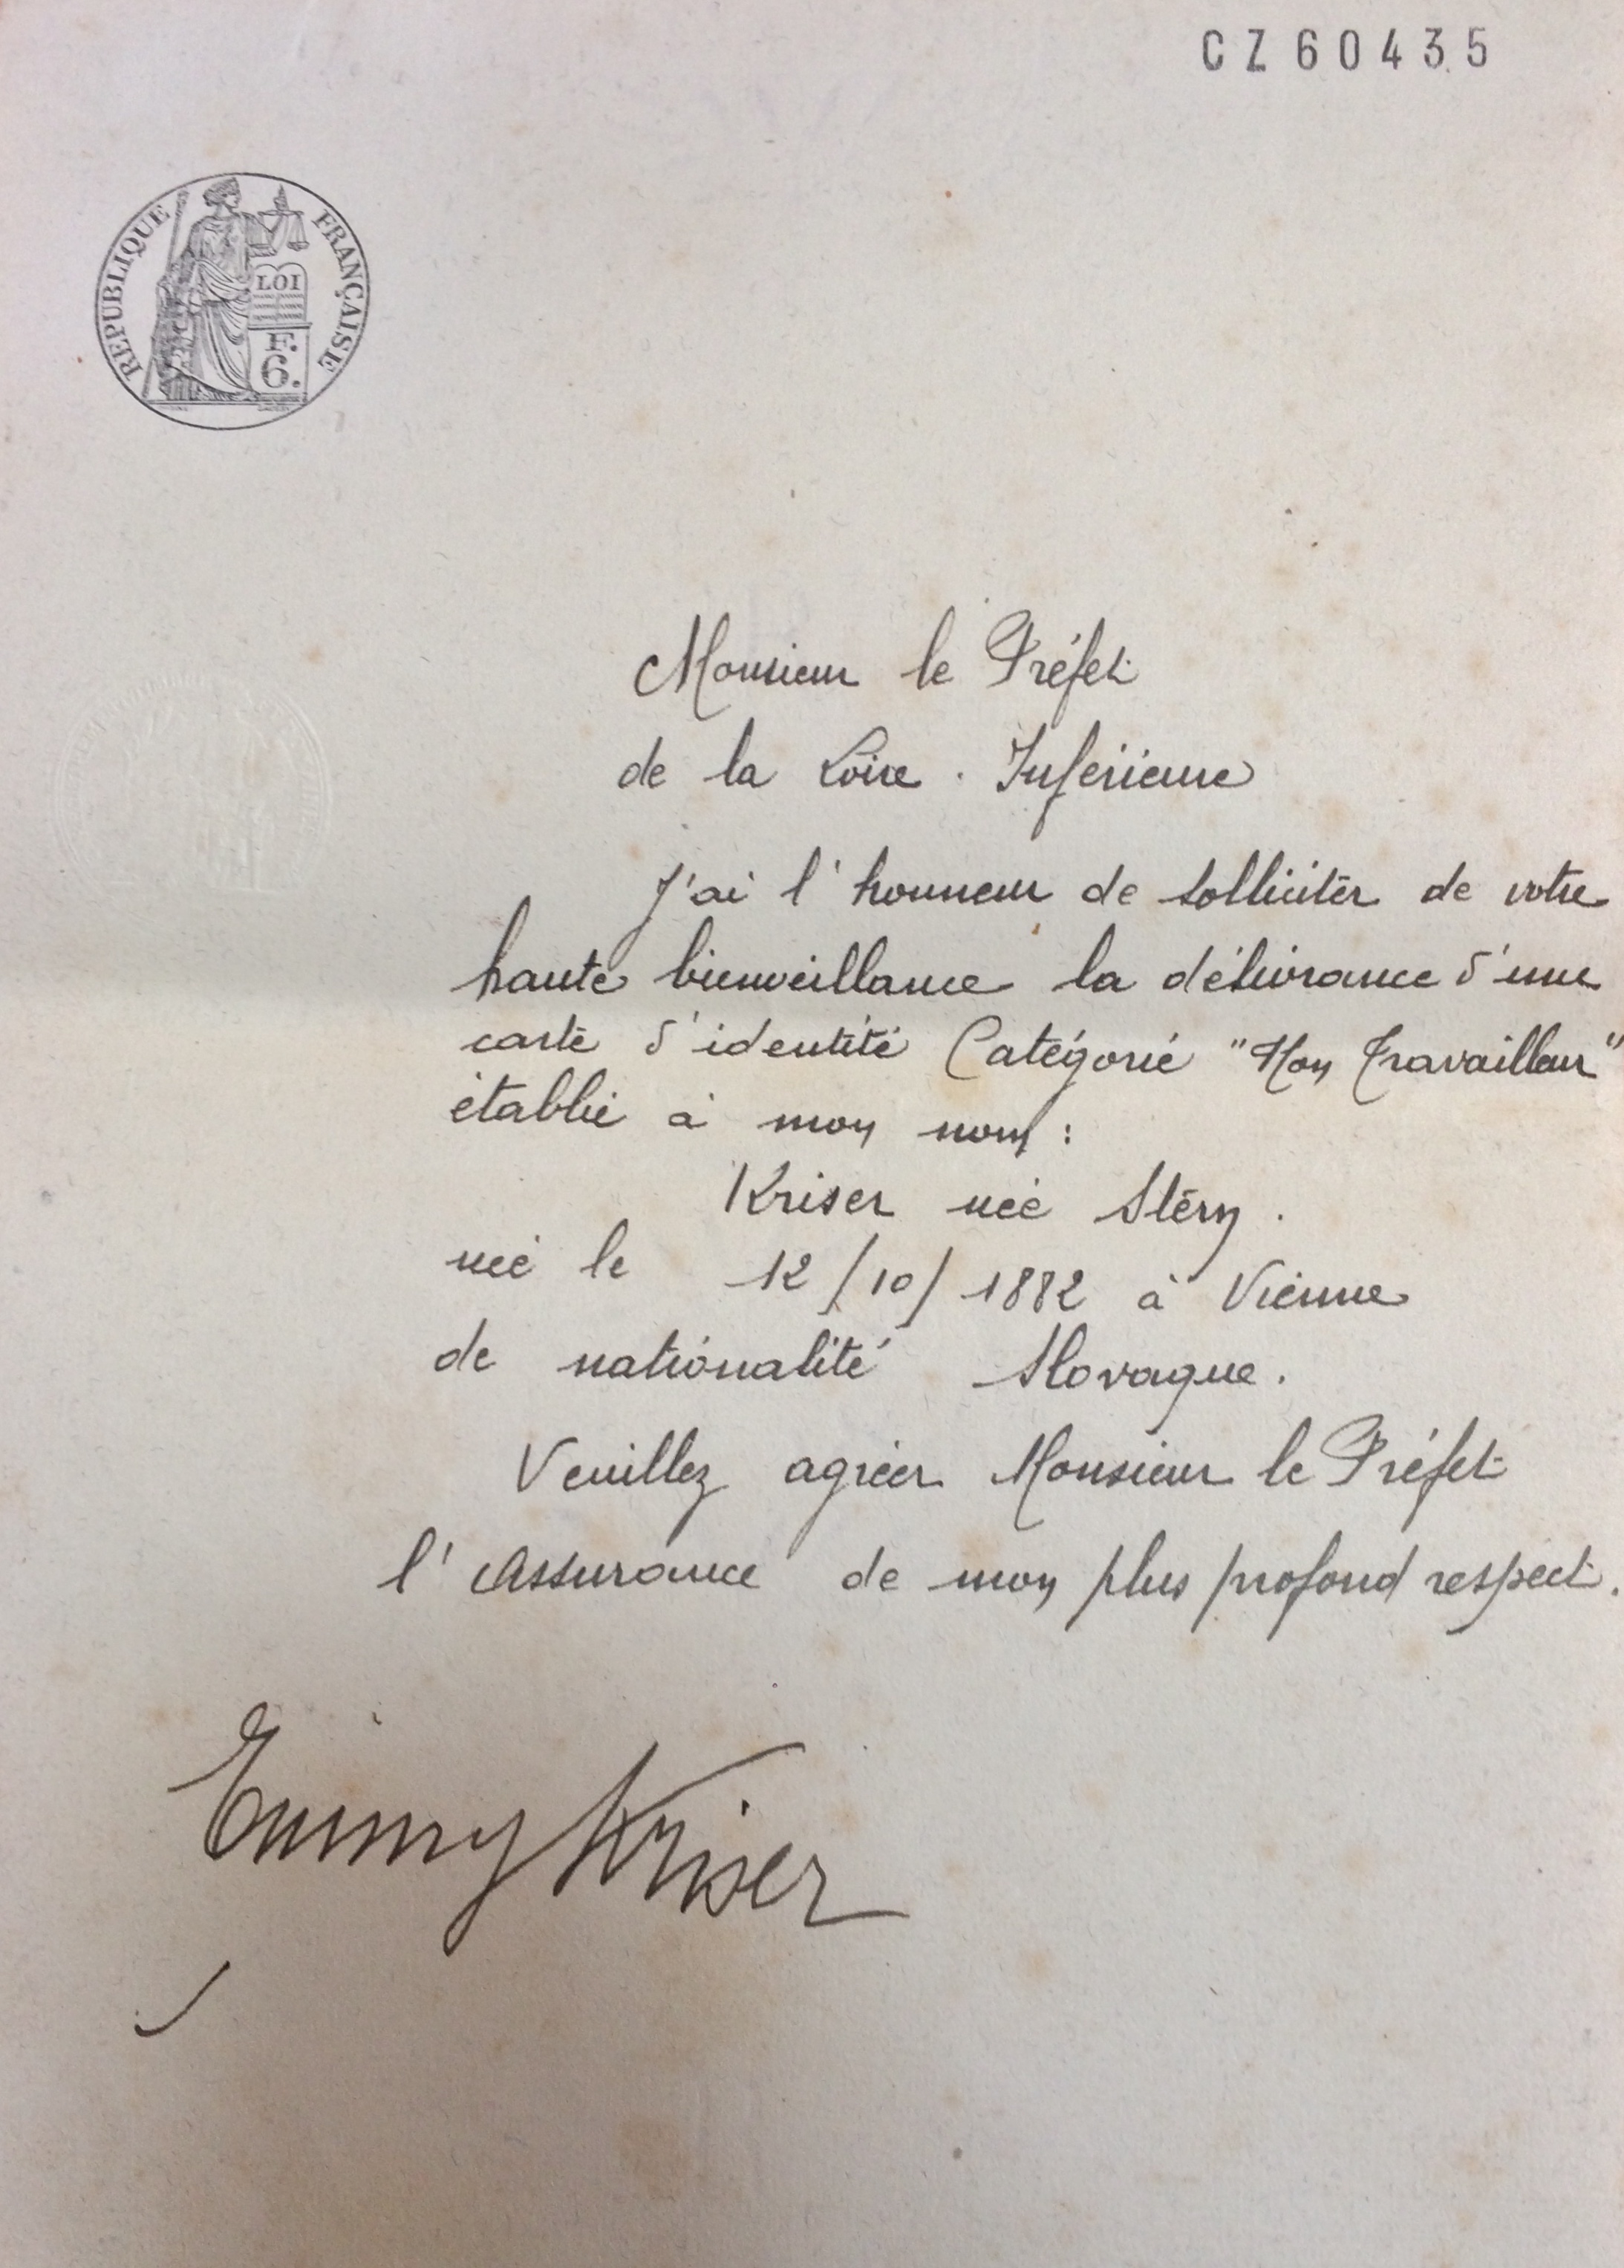 CZ60435
REPUBLIQUE FRANÇAISE
LOI
F.
6.
Monsieur le Préfet
de la Loire-Inférieure
J'ai l'honneur de solliciter de votre
haute bienveillance la délivrance d'une
carte d'identité Catégorie "Non Travailleur"
établie à mon nom :
Kriser née Stern.
née le 12/10/1882 à Vienne
de nationalité Slovaque.
Veuillez agréer Monsieur le Préfet
l'Assurance de mon plus profond respect.
Emmy Kriser